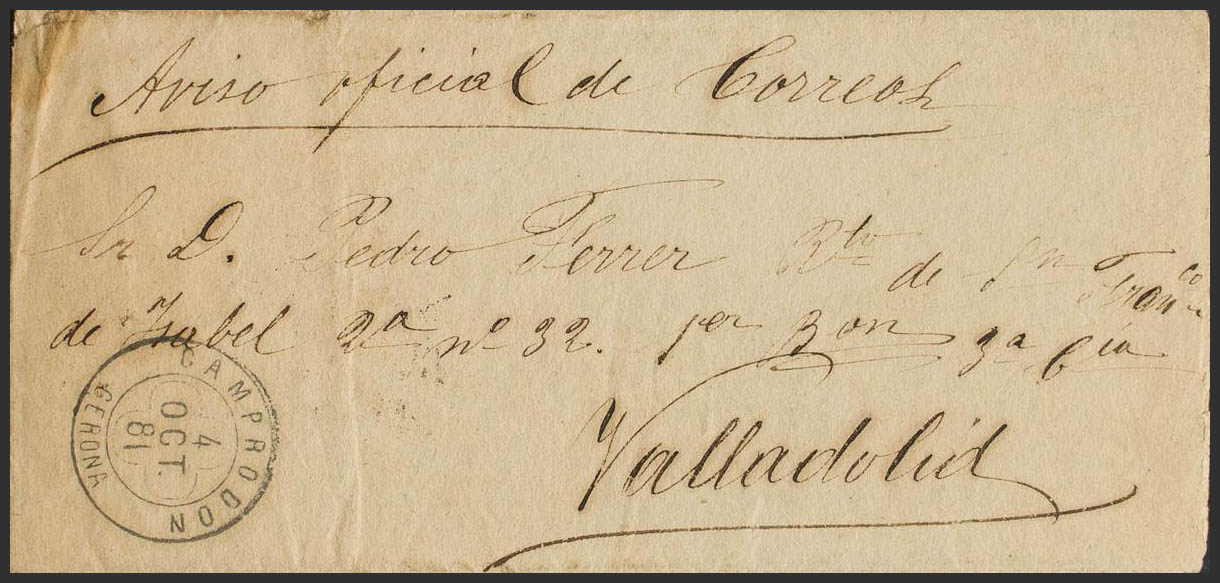 Aviso oficial de Correos
Sr D. Pedro Ferrer Rto de Inf Franco
de Isabel 2a no 32. 1er Bon 3a Cía
Valladolid
CAMPRODON
4
OCT.
81
GERONA